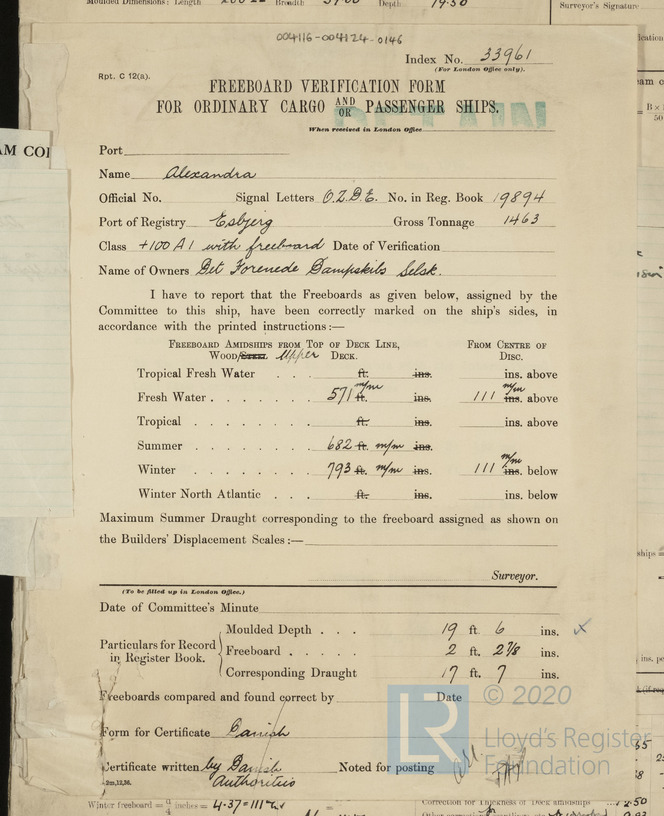 Moulded Dimensions: Length Breadth Depth 19.50
Surveyor's Signature
004116-004124-0146
Index No. 33961
(For London Office only).
Rpt. C 12(a).
FREEBOARD VERIFICATION FORM
FOR ORDINARY CARGO AND/OR PASSENGER SHIPS.
When received in London Office
Port
Name Alexandra
Official No. Signal Letters O.Z.D.E. No. in Reg. Book 19894
Port of Registry Esbjerg Gross Tonnage 1463
Class +100 A1 with freeboard Date of Verification
Name of Owners Det Forenede Dampskibs Selsk.
I have to report that the Freeboards as given below, assigned by the
Committee to this ship, have been correctly marked on the ship's sides, in
accordance with the printed instructions:—
Freeboard Amidships from Top of Deck Line, From Centre of
Wood/Steel Upper Deck. Disc.
Tropical Fresh Water . . . ft. ins. ins. above
Fresh Water . . . . . . . 571 m/m ft. ins. 111 m/m ins. above
Tropical . . . . . . . ft. ins. ins. above
Summer . . . . . . . . 682 ft. m/m ins.
Winter . . . . . . . . 793 ft. m/m ins. 111 m/m ins. below
Winter North Atlantic . . . ft. ins. ins. below
Maximum Summer Draught corresponding to the freeboard assigned as shown on
the Builders' Displacement Scales:—
Surveyor.
(To be filled up in London Office.)
Date of Committee's Minute
Particulars for Record in Register Book.
Moulded Depth . . . 19 ft. 6 ins. x
Freeboard . . . . . 2 ft. 2 7/8 ins.
Corresponding Draught 17 ft. 7 ins.
Freeboards compared and found correct by Date
Form for Certificate Danish
Certificate written by Danish Authorities Noted for posting
2m,12,36.
© 2020
LR
Lloyd's Register
Foundation
Winter freeboard = inches = 4.37 = 111 m/m
Correction for Thickness of Deck amidships 2.50